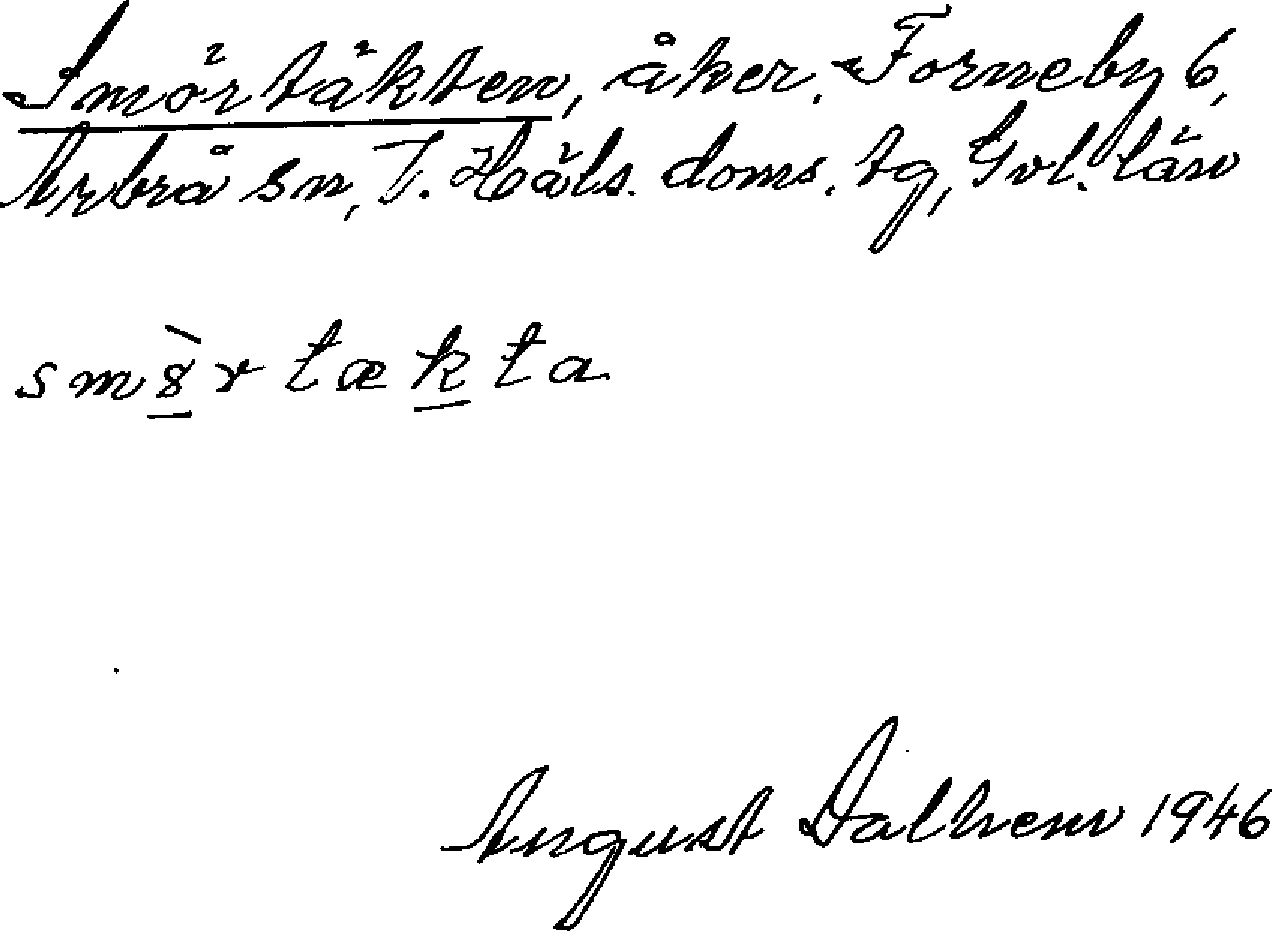 Smörtäkten, åker, Forneby 6,
Arbrå sn, V. Häls. doms. tg, Gvl. län
smö̀rtækta
August Dalhem 1946